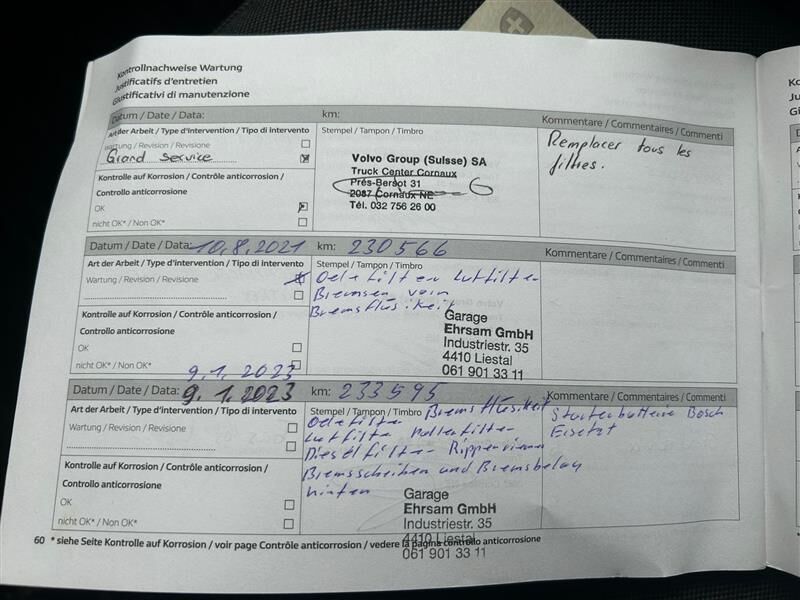 Kontrollnachweise Wartung
Justificatifs d'entretien
Giustificativi di manutenzione
Datum / Date / Data: km: Kommentare / Commentaires / Commenti
Art der Arbeit / Type d'intervention / Tipo di intervento
Wartung / Revision / Revisione
Grand Service
Kontrolle auf Korrosion / Contrôle anticorrosion /
Controllo anticorrosione
OK
nicht OK* / Non OK*
Stempel / Tampon / Timbro
Volvo Group (Suisse) SA
Truck Center Cornaux
Prés-Bersot 31
2087 Cornaux NE
Tél. 032 756 26 00
Remplacer tous les
filtres.
Datum / Date / Data: 10.8.2021 km: 230566 Kommentare / Commentaires / Commenti
Art der Arbeit / Type d'intervention / Tipo di intervento
Wartung / Revision / Revisione
Kontrolle auf Korrosion / Contrôle anticorrosion /
Controllo anticorrosione
OK
nicht OK* / Non OK*
Stempel / Tampon / Timbro
Oelefilter Lutfilter
Bremsen vorn
Bremsflüsikeit
Garage
Ehrsam GmbH
Industriestr. 35
4410 Liestal
061 901 33 11
9.1.2023
Datum / Date / Data: 9.1.2023 km: 233595 Kommentare / Commentaires / Commenti
Art der Arbeit / Type d'intervention / Tipo di intervento
Wartung / Revision / Revisione
Kontrolle auf Korrosion / Contrôle anticorrosion /
Controllo anticorrosione
OK
nicht OK* / Non OK*
Stempel / Tampon / Timbro Bremsflüsikeit
Oelefilter
Lutfilter Pollenfilter
Dieselfilter Rippenriemen
Bremsscheiben und Bremsbelag
hinten
Garage
Ehrsam GmbH
Industriestr. 35
4410 Liestal
061 901 33 11
Starterbatterie Bosch
Eisetzt
60 * siehe Seite Kontrolle auf Korrosion / voir page Contrôle anticorrosion / vedere la pagina controllo anticorrosione